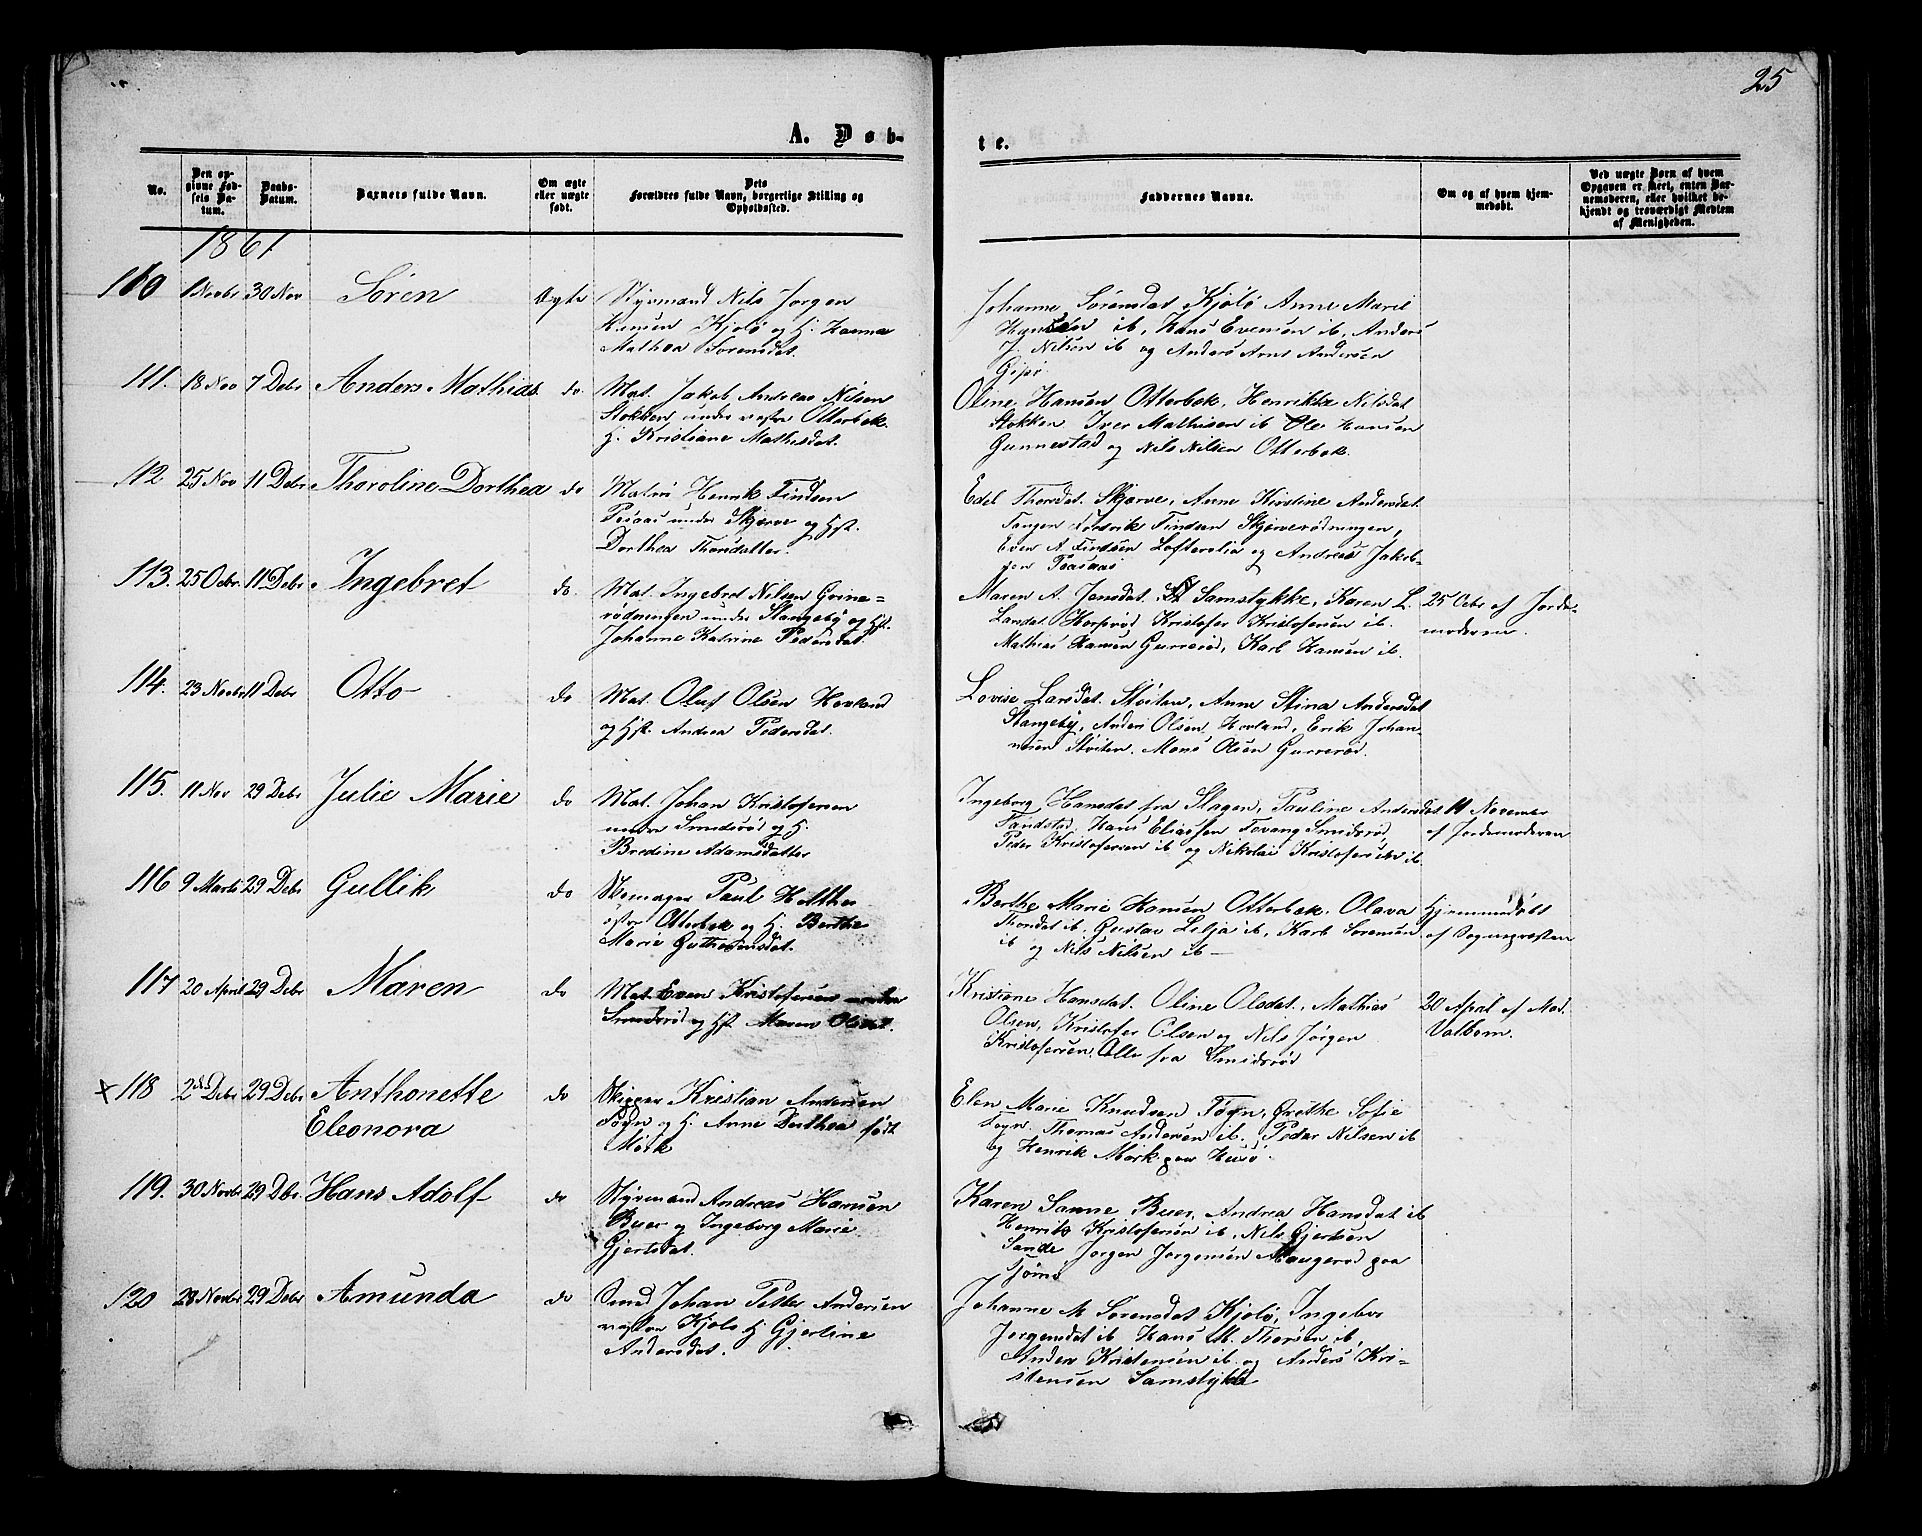 25
A. Døb-
te.
No.
Den op-
givne Fød-
sels Da-
tum.
Daabs-
Datum.
Barnets fulde Navn.
Om ægte
eller uægte
født.
Dets
Forældres fulde Navn, borgerlige Stilling og
Opholdssted.
Faddernes Navne.
Om og af hvem hjem-
medøbt.
Ved uægte Børn af hvem
Opgaven er skeet, enten Bar-
nemoderen, eller hvilket be-
kjendt og troværdigt Medlem
af Menigheden.
1861
110 1 Novbr 30 Nov Sören Ægte Styrmand Nils Jorgen
Hansen Kjolö og H. Hanna
Mathea Sorensdat.
Johanne Sörensdat Kjölö Anne Marie
Hansen ib, Hans Evensen ib, Anders
J. Nilsen ib og Anders Arnt Andersen
Gipö
111. 18 Nov 7 Debr Anders Mathias do. Mat. Jakob Andreas Nilsen
Stokken under vestre Otterbek
H. Kristiane Mathisdat.
Oline Hansen Otterbek, Henrikke Nilsdat
Stokken Iver Mathisen ib Ole Hansen
Gunnestad og Nils Nilsen Otterbek.
112 25 Nov 11 Debr Thoroline Dorthea do Matr Henrik Findsen
under Skjerve og Hst.
Dorthea Thorsdatter.
Edel Thorsdat. Skjerve, Anne Kirstine Andersdat.
Tangen Fredrik Findsen Skjerverödningen,
Even A. Findsen Lofterolia og Andreas Jakob-
sen
113. 25 Octr. 11 Debr. Ingebret do. Mat. Ingebret Nilsen Grine-
rödningen under Stangeby og Hst.
Johanne Katrine Pedersdat.
Maren A. Jensdat. Samstykke, Karen L.
Larsdat Horperöd Kristofer Kristofersen ib.
Mathias Hansen Gurreröd, Karl Hansen ib.
25 Octr af Jorde-
moderen.
114. 23 Novbr 11 Debr Otto do Mat. Oluf Olsen Hovland
og Hst. Andrea Pedersdat.
Lovise Larsdat. Stviten, Anne Stina Andersdat
Stangeby, Anders Olsen Hovland, Erik Johan-
nesen Stviten. Mons Olsen Gurreröd.
115. 11 Nov 29 Debr Julie Marie do Mat. Johan Kristofersen
under Smidsröd og H.
Bredine Adamsdatter
Ingeborg Hansdat fra Slagen, Pauline Andersdat
Tandstad, Hans Eliassen Tovang Smidsröd,
Peder Kristofersen ib og Nikolai Kristofersen ib
11 November
af Jordemoderen
116 9 Marts 29 Debr Gullik do Skomager Paul Holther
östre Otterbek og H. Berthe
Marie Guthormsdat.
Berthe Marie Hansen Otterbek. Olava
Thorsdat ib, Gustav Lilja ib, Karl Sorensen
ib og Nils Nilsen ib —
Hjemmedöbt
af Sognepræsten
117 20 April 29 Debr Maren do Mat. Even Kristofersen under
Smidsröd og Hst Maren Olsdat.
Kristiane Hansdat. Oline Olsdat., Mathias
Olsen, Kristofer Olsen og Nils Jörgen
Kristofersen, Alle fra Smidsröd
20 April af Mad.
Valbom.
x 118 2den Debr 29 Debr Anthonette do Skipper Kristian Andersen
Eleonora Togn og H. Anne Dorthea födt
Mörk
Elen Marie Knudsen Togn, Grethe Sofie
Togn. Thomas Andersen ib. Peder Nilsen ib
og Henrik Mork paa Husö.
119. 30 Novbr 29 Dbr Hans Adolf do Styrmand Andreas Hansen
Buer og Ingeborg Marie
Gjertsdat.
Karen Sanne Buer, Andrea Hansdat ib
Henrik Kristofersen ib, Nils Gjertsen
Sande, Jorgen Jorgensen Maugeröd paa
Tjömö
120 28 Novbr 29 Debr Amunda do Smed Johan Petter Andersen
vestre Kjolö H Gjerline
Andersdat.
Johanne M Sörensdat Kjolö, Ingebor
Jorgensdat ib Hans M. Thorsen ib,
Anders Kristensen ib og Anders Kri-
stensen Samstykke